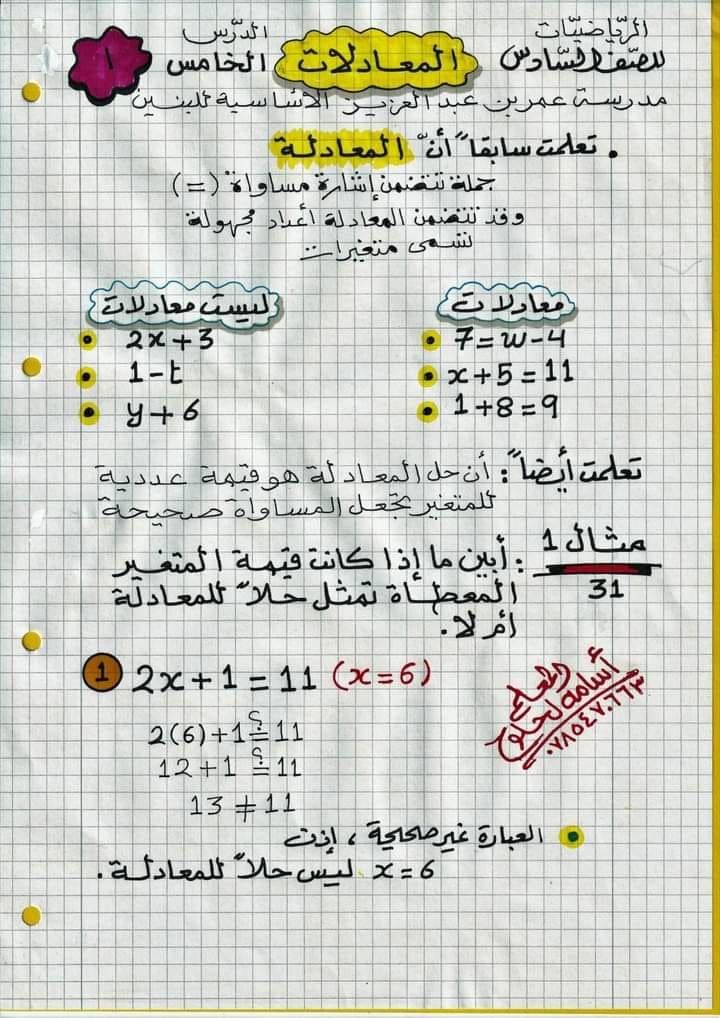 الرّياضيّات
للصّف السّادس
المعادلات
الدّرس
الخامس
١
مدرسة عمر بن عبد العزيز الأساسية للبنين
. تعلمت سابقاً أنّ المعادلة
جملة تتضمن إشارة مساواة (=)
وقد تتضمن المعادلة أعداد مجهولة
تسمى متغيرات
معادلات
7=w-4
x+5=11
1+8=9
ليست معادلات
2x+3
1-t
y+6
تعلمت أيضاً: أن حل المعادلة هو قيمة عددية
للمتغير تجعل المساواة صحيحة
مثال 1
31
: أبين ما إذا كانت قيمة المتغير
المعطاة تمثل حلاً للمعادلة
أم لا.
1 2x+1=11 (x=6)
2(6)+1≟11
12+1≟11
13≠11
العبارة غير صحيحة ، إذن
x=6 ليس حلاً للمعادلة.
المعلم
أسامة لحلوح
٠٧٨٥٤٧٠٦٦٣